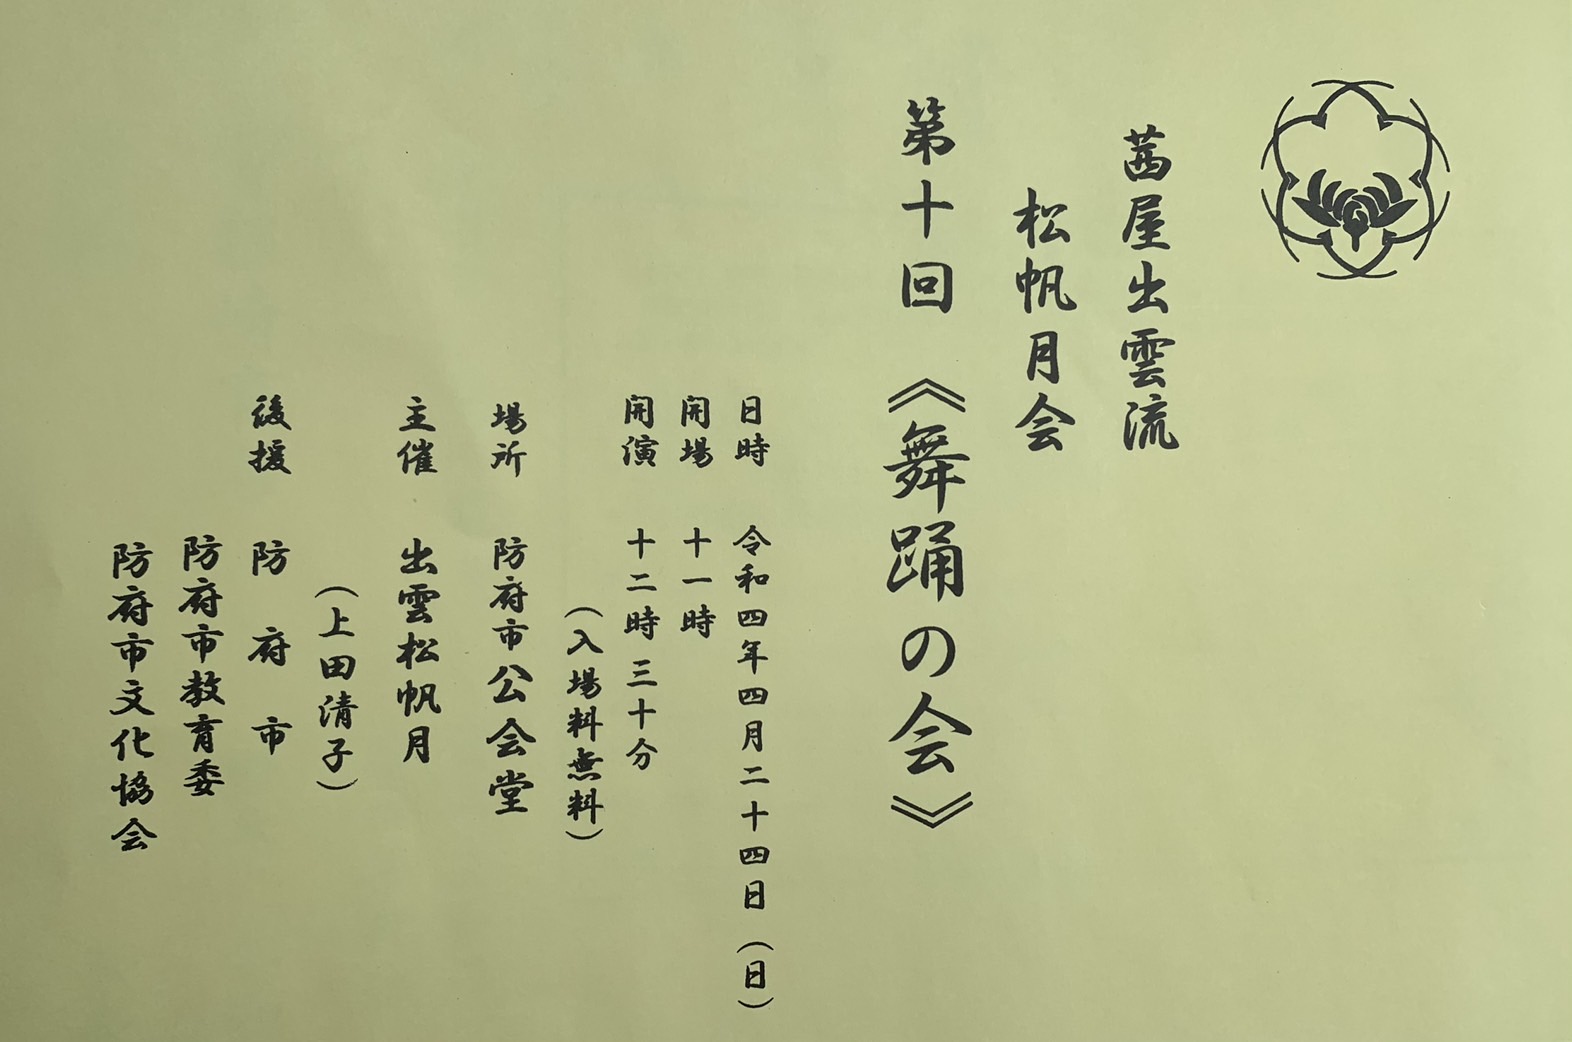 茜屋出雲流
松帆月会
第十回《舞踊の会》
日時 令和四年四月二十四日(日)
開場 十一時
開演 十二時三十分
(入場料無料)
場所 防府市公会堂
主催 出雲松帆月
(上田清子)
後援 防府市
防府市教育委
防府市文化協会